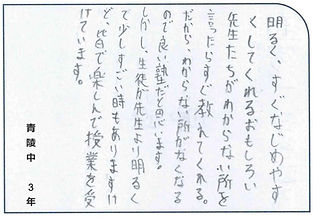 明るく、すぐなじめやす
くしてくれるおもしろい
先生たちがわからない所を
言ったらすぐ教えてくれる。
だから、わからない所がなくなる
ので良い塾だと思います。
しかし、生徒が先生より明るく
て少しすごい時もありますけ
ど、皆で楽しんで授業を受
けています。
青陵中 3年